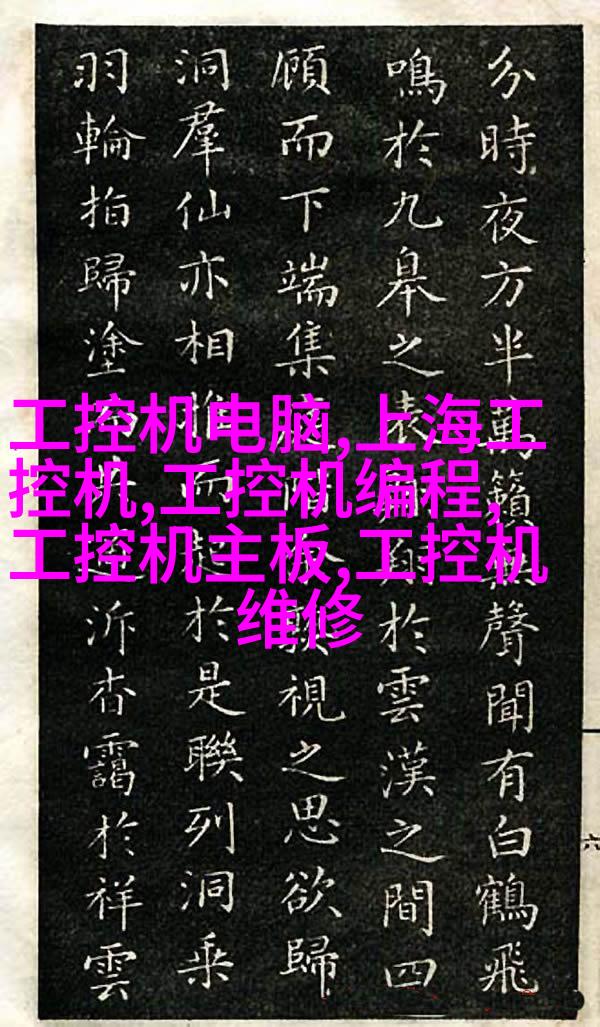 工控机电脑,上海工
控机,工控机编程,
工控机主板,工控机
维修
分時夜方半萬籟無聲聞有白鶴飛
鳴於九皋之表於雲漢之間四
顧而下端集視之思欲歸
洞羣仙亦相而起於是聯列洞乘
羽輪拍歸塗泝杳靄於祥雲
六